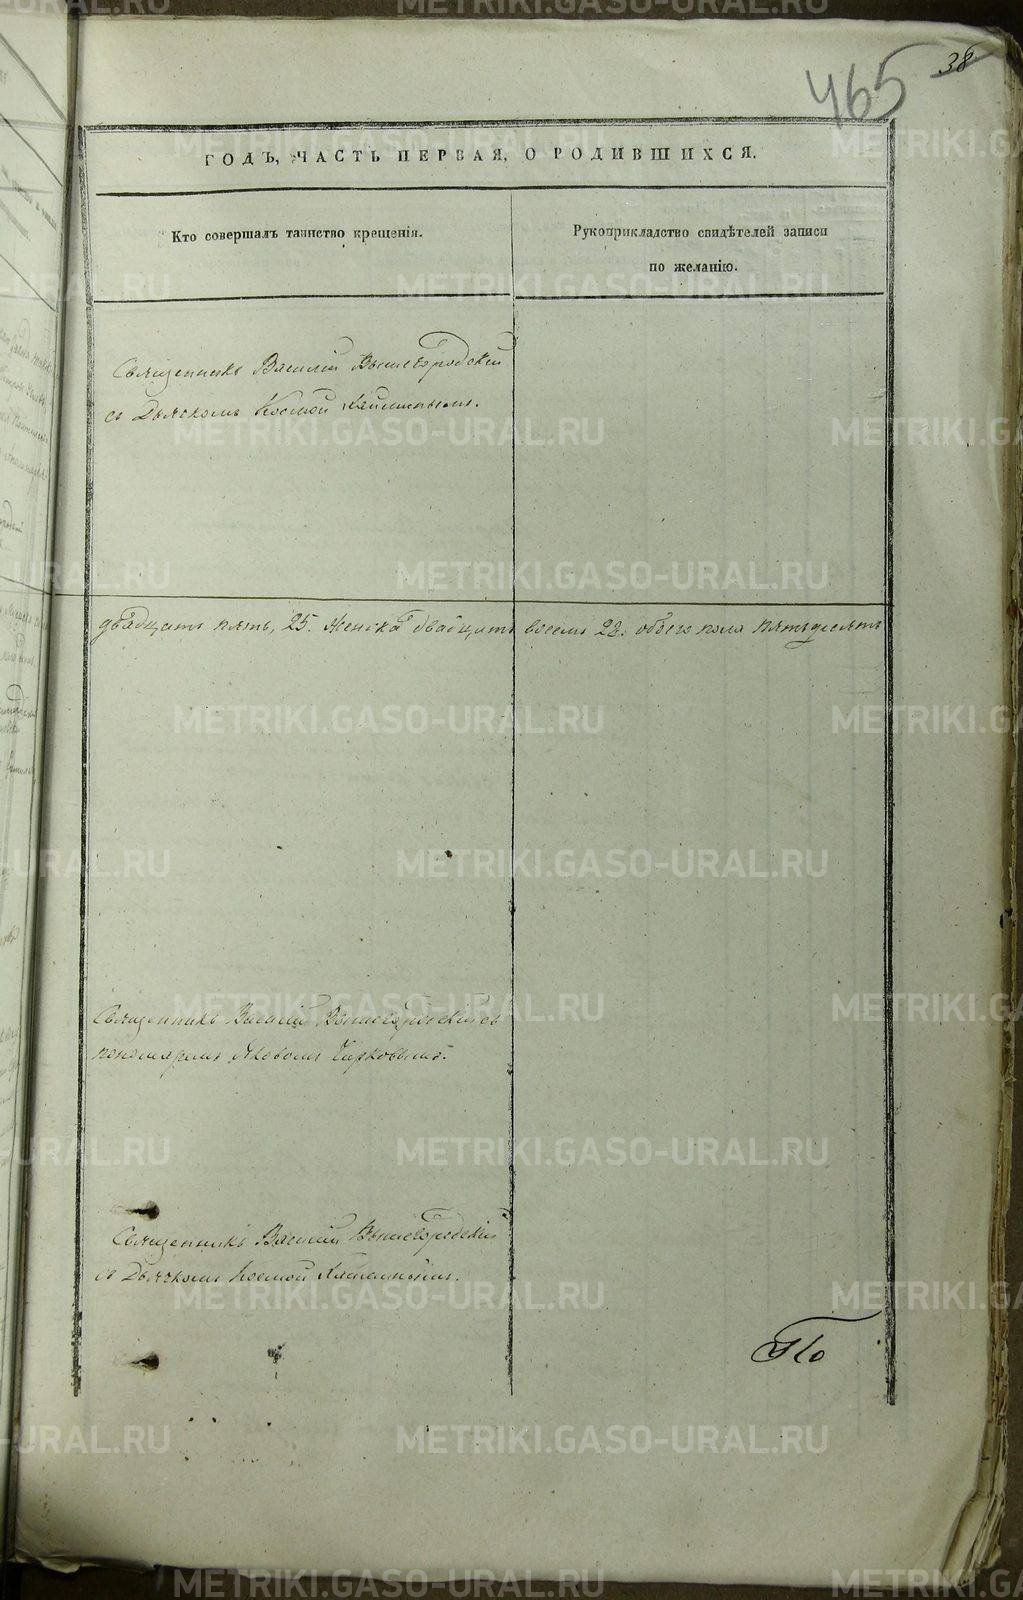 465 38
ГОДЪ, ЧАСТЬ ПЕРВАЯ, О РОДИВШИХСЯ.
Кто совершалъ таинство крещенія.
Рукоприкладство свидѣтелей записи
по желанію.
Священникъ Василій Вышегородскій
съ Дьячкомъ Космой
двадцать пять, 25. Женска двадцать восемь 28. обоего пола пятьдесятъ
Священникъ Василій Вышегородскій съ
пономаремъ Яковомъ Чирковымъ.
Священникъ Василій Вышегородскій
съ Дьячкомъ Космой
По
METRIKI.GASO-URAL.RU